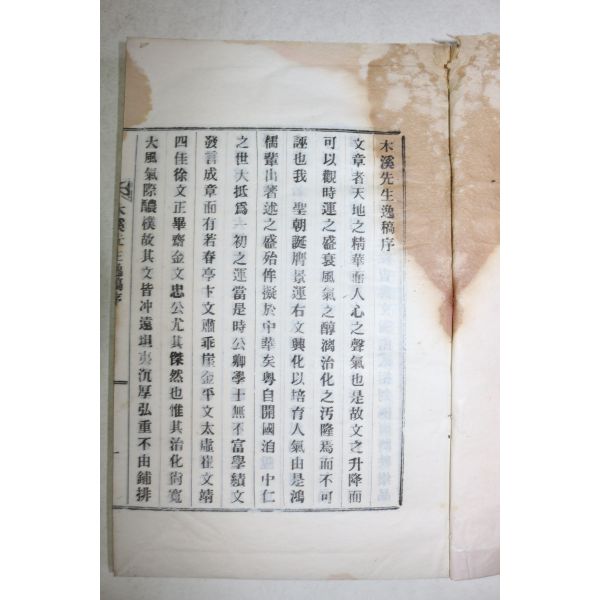 木溪先生逸稿序
文章者天地之精華而人心之聲氣也是故文之升降而
可以觀時運之盛衰風氣之醇漓治化之汚隆焉而不可
誣也我 聖朝誕膺景運右文興化以培育人氣由是鴻
儒輩出著述之盛殆侔擬於中華矣粤自開國洎 中仁
之世大抵爲 初之運當是時公卿學士無不富學績文
發言成章而有若春亭卞文肅乖崖金平文太虛崔文靖
四佳徐文正畢齋金文忠公尤其傑然也惟其治化尙寬
大風氣際醲樸故其文皆冲遠坦夷沉厚弘重不由鋪排
木溪先生逸稿序